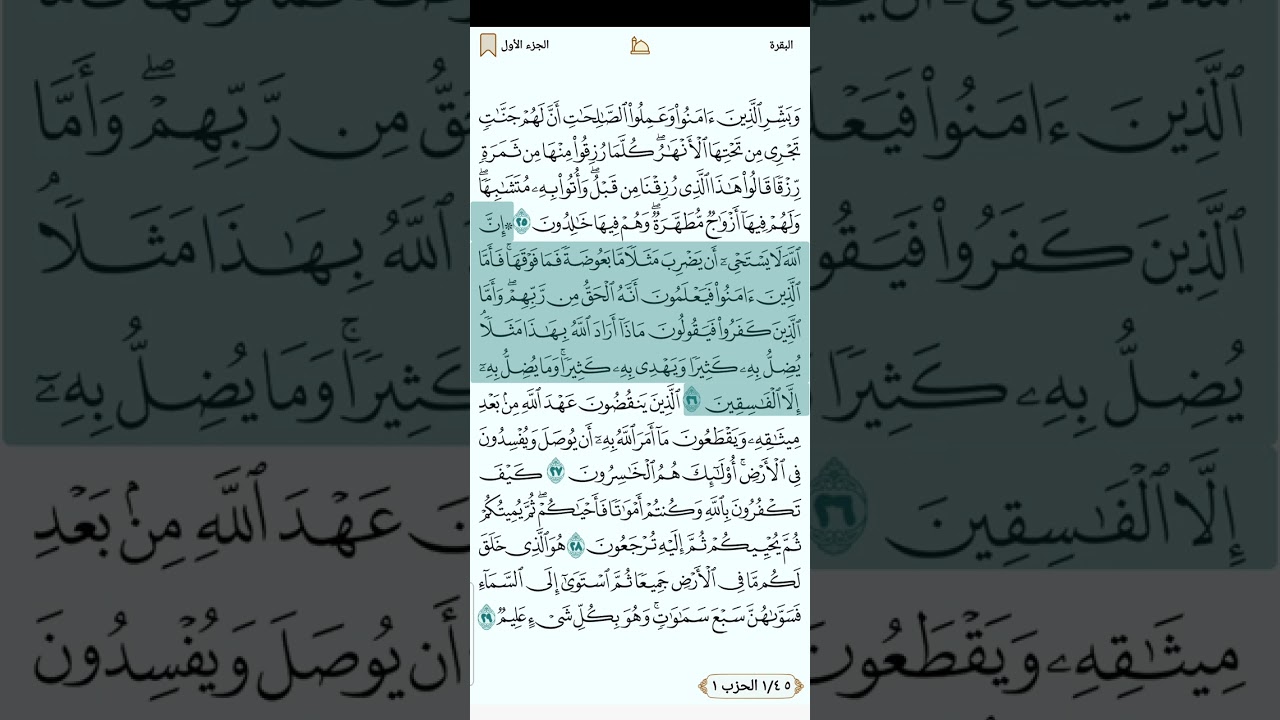 البقرة
الجزء الأول
وَبَشِّرِ ٱلَّذِينَ ءَامَنُوا۟ وَعَمِلُوا۟ ٱلصَّٰلِحَٰتِ أَنَّ لَهُمْ جَنَّٰتٍ
تَجْرِى مِن تَحْتِهَا ٱلْأَنْهَٰرُ ۖ كُلَّمَا رُزِقُوا۟ مِنْهَا مِن ثَمَرَةٍ
رِّزْقًا قَالُوا۟ هَٰذَا ٱلَّذِى رُزِقْنَا مِن قَبْلُ ۖ وَأُتُوا۟ بِهِۦ مُتَشَٰبِهًا ۖ
وَلَهُمْ فِيهَآ أَزْوَٰجٌ مُّطَهَّرَةٌ ۖ وَهُمْ فِيهَا خَٰلِدُونَ ٢٥ ۞ إِنَّ
ٱللَّهَ لَا يَسْتَحْىِۦٓ أَن يَضْرِبَ مَثَلًا مَّا بَعُوضَةً فَمَا فَوْقَهَا ۚ فَأَمَّا
ٱلَّذِينَ ءَامَنُوا۟ فَيَعْلَمُونَ أَنَّهُ ٱلْحَقُّ مِن رَّبِّهِمْ ۖ وَأَمَّا
ٱلَّذِينَ كَفَرُوا۟ فَيَقُولُونَ مَاذَآ أَرَادَ ٱللَّهُ بِهَٰذَا مَثَلًا ۘ
يُضِلُّ بِهِۦ كَثِيرًا وَيَهْدِى بِهِۦ كَثِيرًا ۚ وَمَا يُضِلُّ بِهِۦٓ
إِلَّا ٱلْفَٰسِقِينَ ٢٦ ٱلَّذِينَ يَنقُضُونَ عَهْدَ ٱللَّهِ مِنۢ بَعْدِ
مِيثَٰقِهِۦ وَيَقْطَعُونَ مَآ أَمَرَ ٱللَّهُ بِهِۦٓ أَن يُوصَلَ وَيُفْسِدُونَ
فِى ٱلْأَرْضِ ۚ أُو۟لَٰٓئِكَ هُمُ ٱلْخَٰسِرُونَ ٢٧ كَيْفَ
تَكْفُرُونَ بِٱللَّهِ وَكُنتُمْ أَمْوَٰتًا فَأَحْيَٰكُمْ ۖ ثُمَّ يُمِيتُكُمْ
ثُمَّ يُحْيِيكُمْ ثُمَّ إِلَيْهِ تُرْجَعُونَ ٢٨ هُوَ ٱلَّذِى خَلَقَ
لَكُم مَّا فِى ٱلْأَرْضِ جَمِيعًا ثُمَّ ٱسْتَوَىٰٓ إِلَى ٱلسَّمَآءِ
فَسَوَّىٰهُنَّ سَبْعَ سَمَٰوَٰتٍ ۚ وَهُوَ بِكُلِّ شَىْءٍ عَلِيمٌ ٢٩
٥ ١/٤ الحزب ١